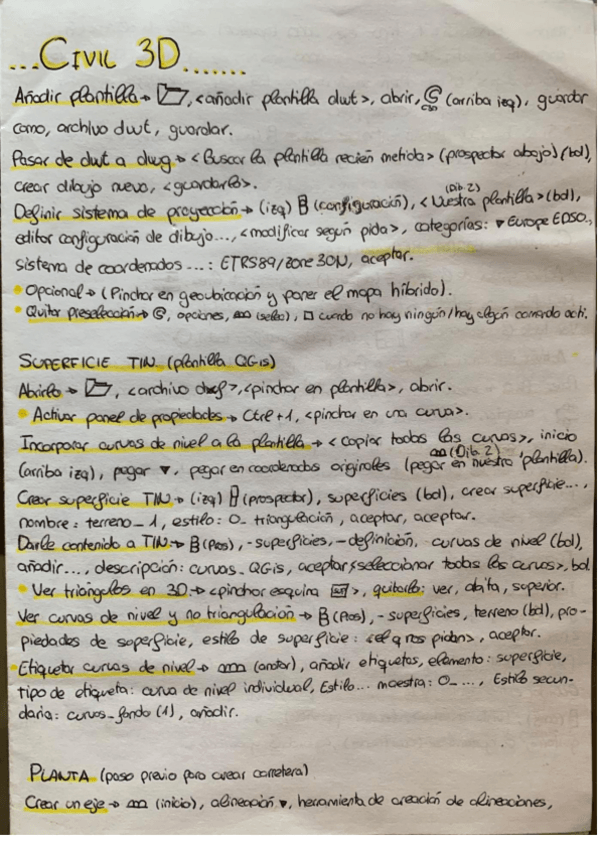 ...CIVIL 3D.......
Añadir plantilla → , <añadir plantilla dwt>, abrir, C C3D (arriba izq), guardar
como, archivo dwt, guardar.
Pasar de dwt a dwg → <Buscar la plantilla recién metida> (prospector abajo) (bd),
crear dibujo nuevo, <guardarlo>.
Definir sistema de proyección → (izq) (configuración), <Nuestra plantilla> (bd), (Dib. 2)
editar configuración de dibujo..., <modificar según pida>, categorías: ▾ Europe EPSG.,
sistema de coordenadas...: ETRS89/zone 30N, aceptar.
• Opcional → (Pinchar en geoubicación y poner el mapa híbrido).
• Quitar preselección → C, opciones, (selec), □ cuando no hay ningún/hay algún comando acti.
SUPERFICIE TIN (plantilla QGis)
Abrirlo → , <archivo dxf>, <pinchar en plantilla>, abrir.
• Activar panel de propiedades → Ctrl+1, <pinchar en una curva>.
Incorporar curvas de nivel a la plantilla → <copiar todas las curvas>, inicio
(arriba izq), pegar ▾, pegar en coordenadas originales (pegar en nuestra plantilla). (Dib. 2)
Crear superficie TIN → (izq) (prospector), superficies (bd), crear superficie...,
nombre: terreno_1, estilo: 0_triangulación, aceptar, aceptar.
Darle contenido a TIN → (Pros), -superficies, -definición, curvas de nivel (bd),
añadir..., descripción: curvas_QGis, aceptar, <seleccionar todas las curvas>, bd.
• Ver triángulos en 3D → <pinchar esquina >, quitarlo: ver, alzita, superior.
Ver curvas de nivel y no triangulación → (Pros), -superficies, terreno (bd), pro-
piedades de superficie, estilo de superficie: <el q nos pidan>, aceptar.
• Etiquetar curvas de nivel → (anotar), añadir etiquetas, elemento: superficie,
tipo de etiqueta: curva de nivel individual, Estilo... maestra: 0_..., Estilo secun-
daria: curvas_fondo (1), añadir.
PLANTA (paso previo para crear carretera)
Crear un eje → (inicio), alineación ▾, herramienta de creación de alineaciones,